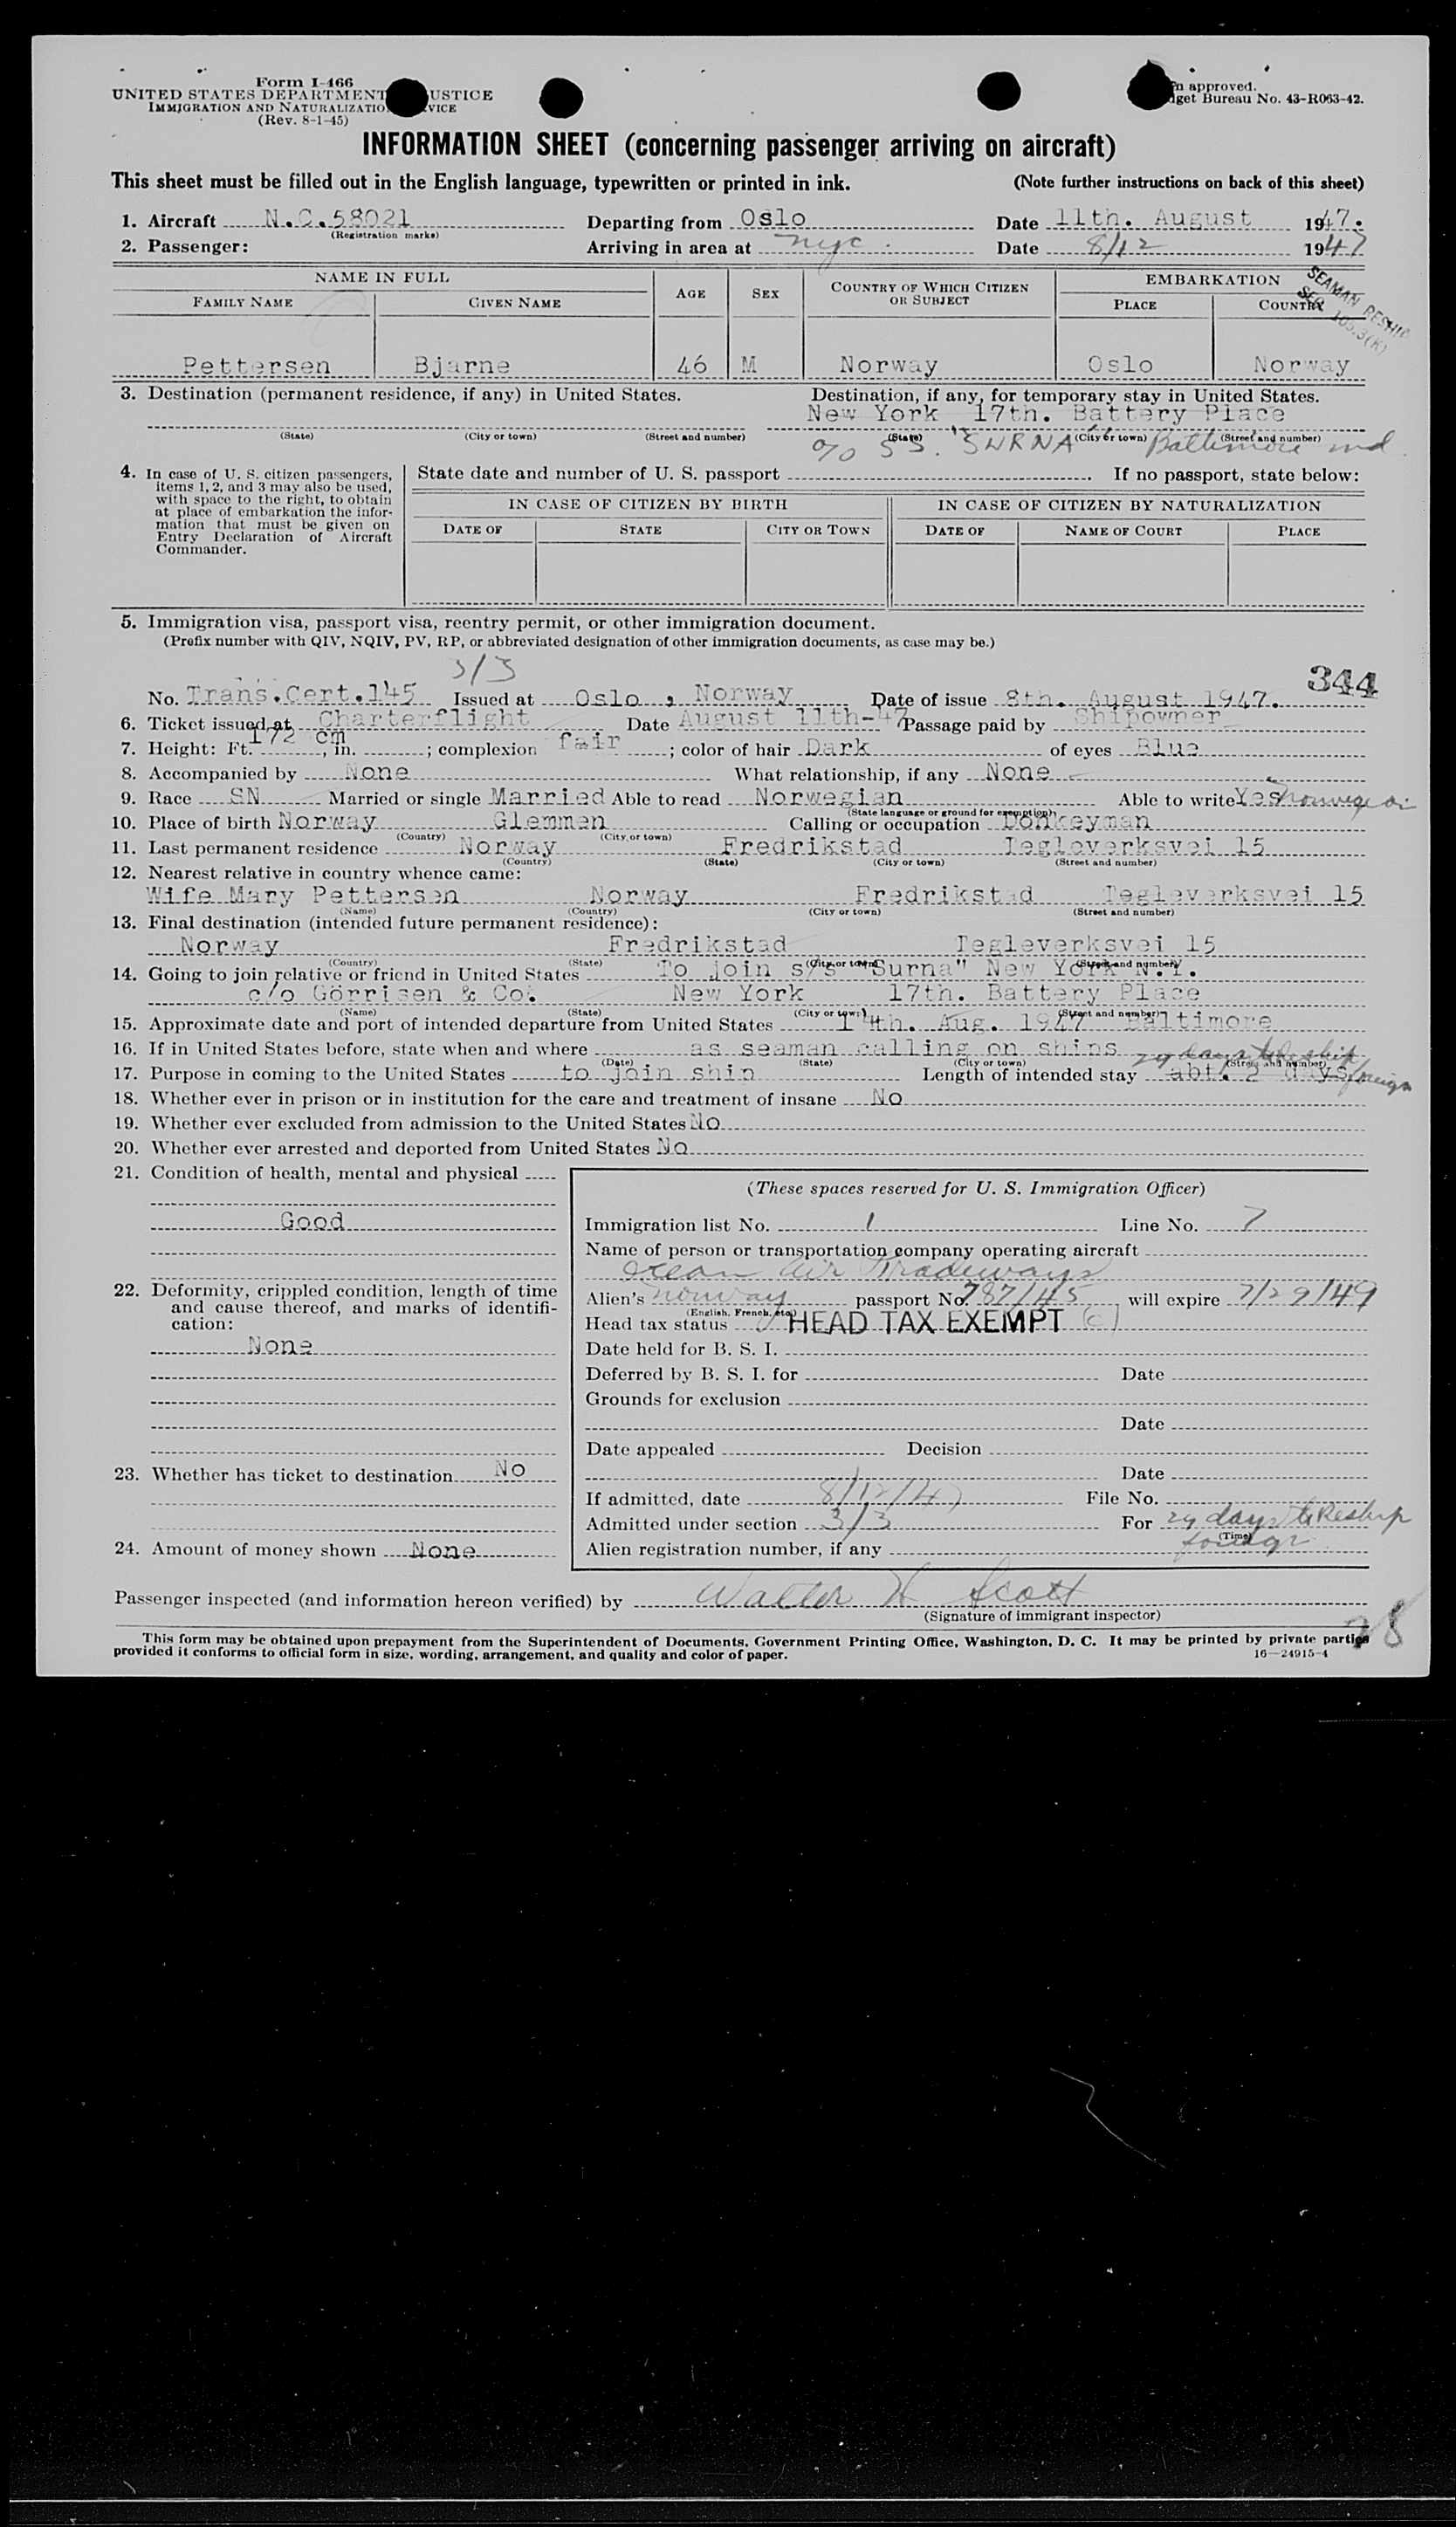 Form I-466
UNITED STATES DEPARTMENT USTICE
IMMIGRATION AND NATURALIZATIO VICE
(Rev. 8-1-45)
approved.
get Bureau No. 43-R063-42.
INFORMATION SHEET (concerning passenger arriving on aircraft)
This sheet must be filled out in the English language, typewritten or printed in ink. (Note further instructions on back of this sheet)
1. Aircraft N.C.58021 Departing from Oslo Date 11th. August 1947.
(Registration marks)
2. Passenger: Arriving in area at nyc. Date 8/12 1947
NAME IN FULL AGE SEX COUNTRY OF WHICH CITIZEN OR SUBJECT EMBARKATION
FAMILY NAME GIVEN NAME PLACE COUNTRY
SEAMAN RESHIP
SEC 105.3(K)
Pettersen Bjarne 46 M Norway Oslo Norway
3. Destination (permanent residence, if any) in United States. Destination, if any, for temporary stay in United States.
New York 17th. Battery Place
(State) (City or town) (Street and number) (State) (City or town) (Street and number)
c/o SS. "SURNA" Baltimore md.
4. In case of U. S. citizen passengers, items 1, 2, and 3 may also be used, with space to the right, to obtain at place of embarkation the information that must be given on Entry Declaration of Aircraft Commander.
State date and number of U. S. passport . If no passport, state below:
IN CASE OF CITIZEN BY BIRTH IN CASE OF CITIZEN BY NATURALIZATION
DATE OF STATE CITY OR TOWN DATE OF NAME OF COURT PLACE
5. Immigration visa, passport visa, reentry permit, or other immigration document.
(Prefix number with QIV, NQIV, PV, RP, or abbreviated designation of other immigration documents, as case may be.)
3/3 344
No. Trans.Cert.145 Issued at Oslo , Norway Date of issue 8th. August 1947.
6. Ticket issued at Charterflight Date August 11th-47 Passage paid by Shipowner
7. Height: Ft. 172 cm, in. ; complexion fair ; color of hair Dark of eyes Blue
8. Accompanied by None What relationship, if any None
9. Race SN Married or single Married Able to read Norwegian Able to write Yes Norwegian
(State language or ground for exemption)
10. Place of birth Norway Glemmen Calling or occupation Donkeyman
(Country) (City or town)
11. Last permanent residence Norway Fredrikstad Tegleverksvei 15
(Country) (State) (City or town) (Street and number)
12. Nearest relative in country whence came:
Wife Mary Pettersen Norway Fredrikstad Tegleverksvei 15
(Name) (Country) (City or town) (Street and number)
13. Final destination (intended future permanent residence):
Norway Fredrikstad Tegleverksvei 15
(Country) (State) (City or town) (Street and number)
14. Going to join relative or friend in United States To join s/s "Surna" New York N.Y.
c/o Görrisen & Co. New York 17th. Battery Place
(Name) (State) (City or town) (Street and number)
15. Approximate date and port of intended departure from United States 14th. Aug. 1947 Baltimore
16. If in United States before, state when and where as seaman calling on ships
(Date) (State) (City or town) (Street and number)
29 days to Reship foreign
17. Purpose in coming to the United States to join ship Length of intended stay abt. 2 days
18. Whether ever in prison or in institution for the care and treatment of insane No
19. Whether ever excluded from admission to the United States No
20. Whether ever arrested and deported from United States No
21. Condition of health, mental and physical
Good
22. Deformity, crippled condition, length of time and cause thereof, and marks of identification:
None
23. Whether has ticket to destination No
24. Amount of money shown None
(These spaces reserved for U. S. Immigration Officer)
Immigration list No. 1 Line No. 7
Name of person or transportation company operating aircraft
Ocean Air Tradeways
Alien's Norway passport No. 787/45 will expire 7/29/49
(English, French, etc.)
Head tax status HEAD TAX EXEMPT
Date held for B. S. I.
Deferred by B. S. I. for Date
Grounds for exclusion
Date
Date appealed Decision
Date
If admitted, date 8/12/47 File No.
Admitted under section 3/3 For 29 days to Reship foreign
(Time)
Alien registration number, if any
Passenger inspected (and information hereon verified) by Walter W Scott
(Signature of immigrant inspector)
This form may be obtained upon prepayment from the Superintendent of Documents, Government Printing Office, Washington, D. C. It may be printed by private parties
provided it conforms to official form in size, wording, arrangement, and quality and color of paper. 16—24915-4